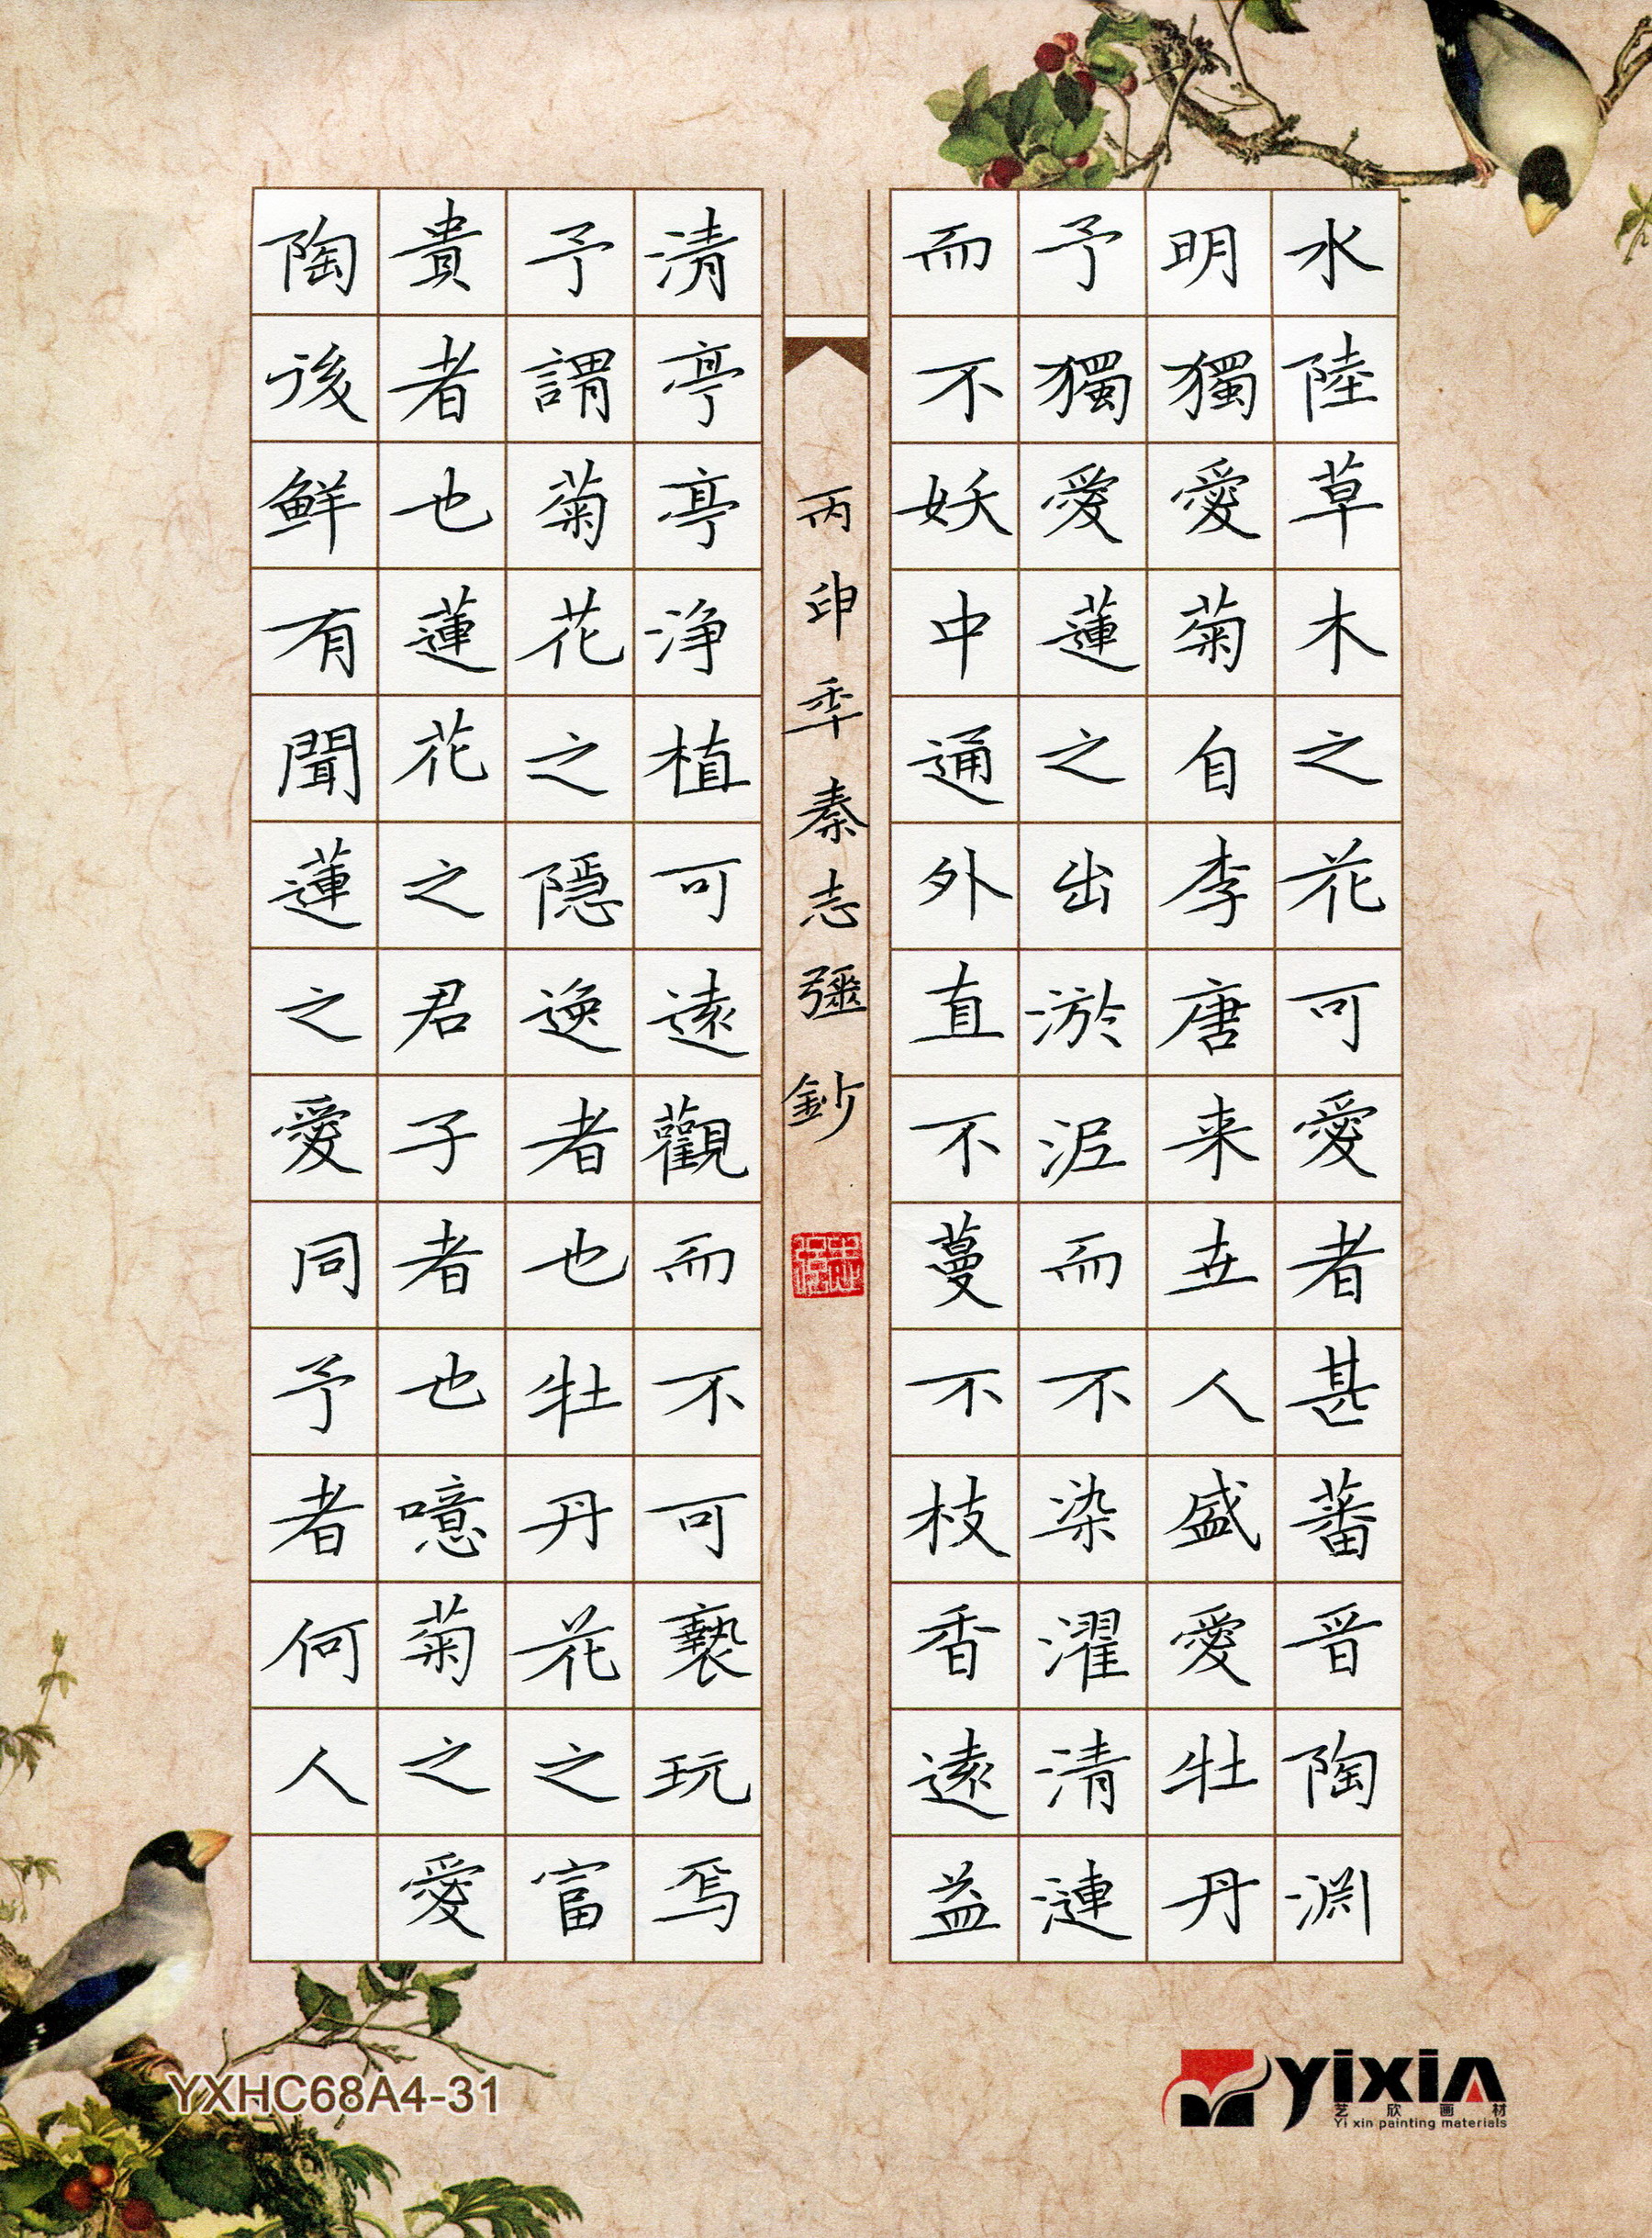 水陸草木之花可愛者甚蕃晋陶渊
明獨愛菊自李唐来世人盛愛牡丹
予獨愛蓮之出淤泥而不染濯清漣
而不妖中通外直不蔓不枝香遠益
清亭亭浄植可遠觀而不可褻玩焉
予謂菊花之隱逸者也牡丹花之富
貴者也蓮花之君子者也噫菊之愛
陶後鲜有聞蓮之愛同予者何人
丙申年秦志彊鈔
YXHC68A4-31
yixin
艺欣画材
Yi xin painting materials